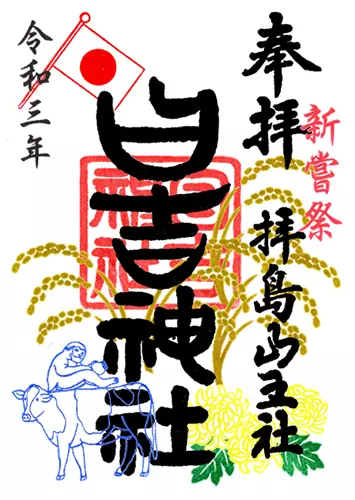 奉拝
拝島山王社
新嘗祭
日吉神社
令和三年